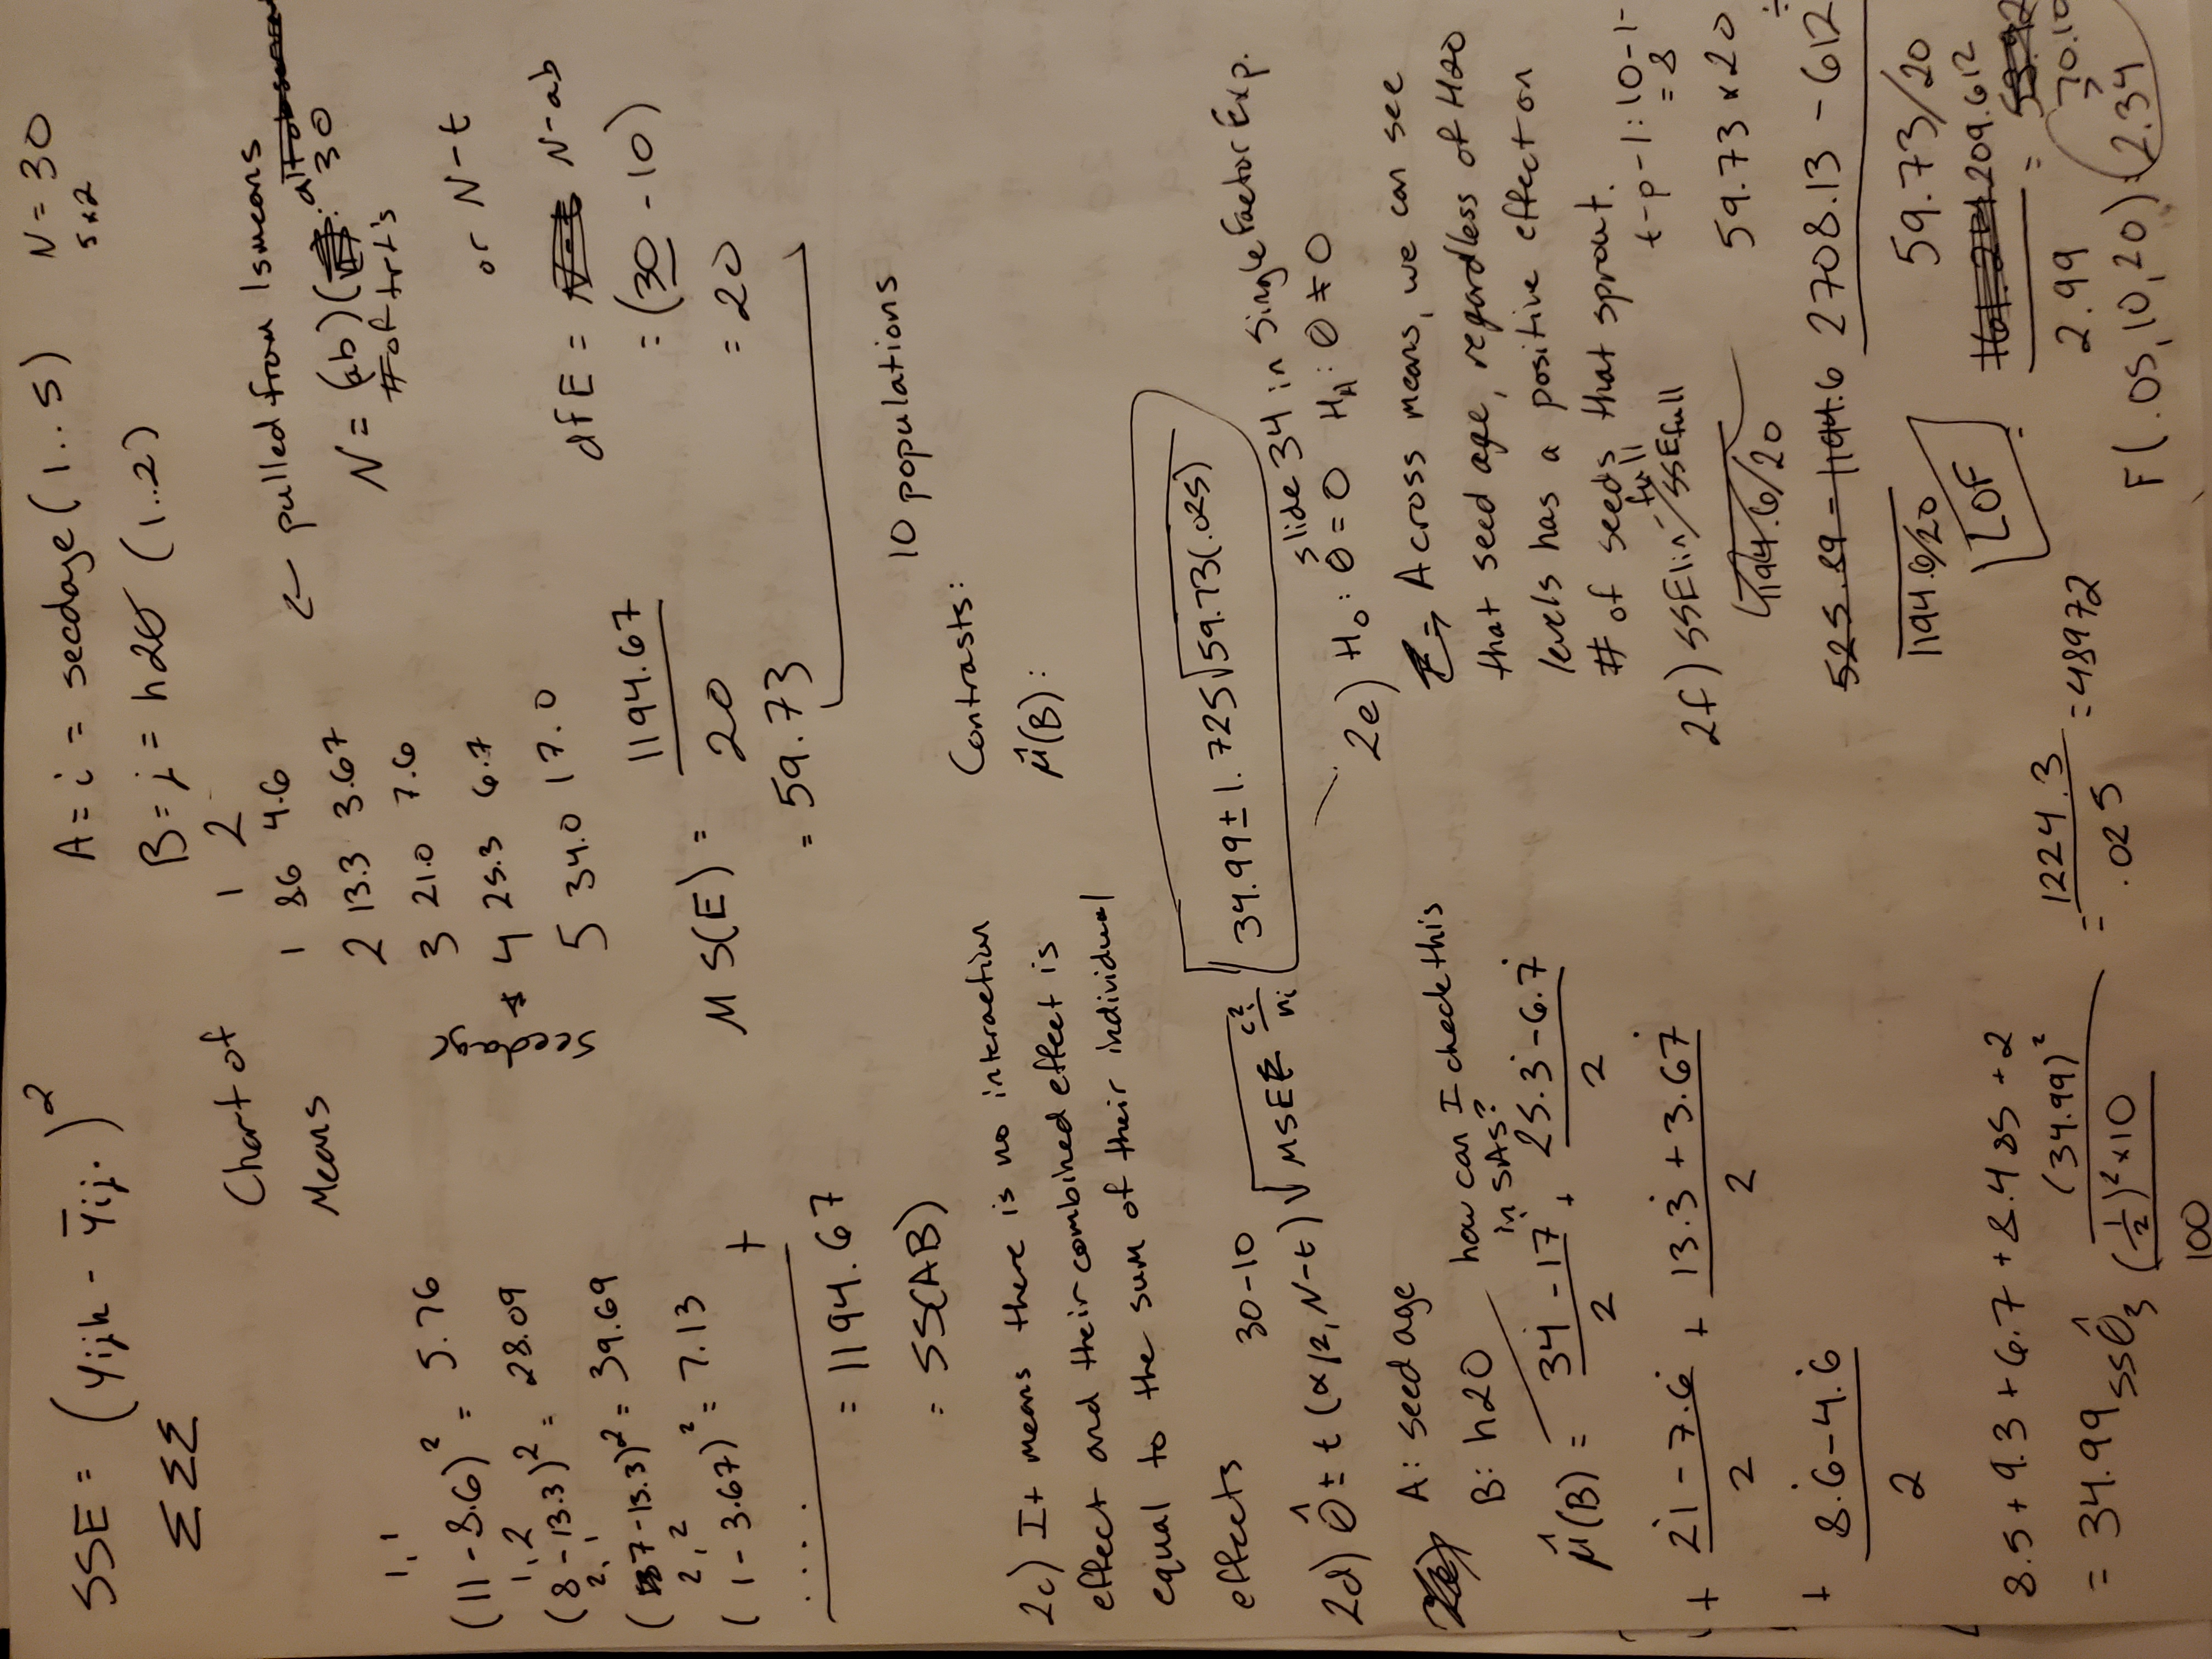 SSE = (yijk - ȳij.)²
ΣΣΣ
A = i = seedage (1..5) N = 30
5x2
B = j = h20 (1..2)
Chart of
Means
1 2
1 8.6 4.6
2 13.3 3.67
3 21.0 7.6
4 25.3 6.7
5 34.0 17.0
seedage
← pulled from lsmeans
N = (ab)( 30
# of trt's
or N-t
dfE = N-ab
= (30 - 10)
= 20
1,1
(11 - 8.6)² = 5.76
1,2
(8 - 13.3)² = 28.09
2,1
(7 - 13.3)² = 39.69
2,2
(1 - 3.67)² = 7.13
+
....
= 1194.67
= SS(AB)
MS(E) = 1194.67
20
= 59.73
10 populations
Contrasts:
μ̂(B):
2c) It means there is no interaction
effect and their combined effect is
equal to the sum of their individual
effects
30-10
2d) θ̂ ± t(α/2, N-t) √MSE Σ ci²/ni
34.99 ± 1.725√59.73(.025)
slide 34 in Single Factor Exp.
A: seed age
B: h20
how can I check this
in SAS?
μ̂(B) = 34 - 17 / 2 + 25.3 - 6.7 / 2
+ 21 - 7.6 / 2 + 13.3 + 3.67 / 2
+ 8.6 - 4.6 / 2
8.5 + 9.3 + 6.7 + 8.485 + 2
= 34.99
SSθ̂3 (34.99)² / (1/2)² x 10 / 100 = 1224.3 / .025 = 48972
2e) H0: θ = 0 HA: θ ≠ 0
Across means, we can see
that seed age, regardless of H20
levels has a positive effect on
# of seeds that sprout.
2f) SSElin - full / SSEfull
t-p-1: 10-1-
= 8
1194.6/20
59.73 x 20
÷
525.89 - 1194.6
1194.6/20
2708.13 - 612
59.73/20
LOF
= 209.612
2.99
= 70.10
>
F(.05, 10, 20) = 2.34